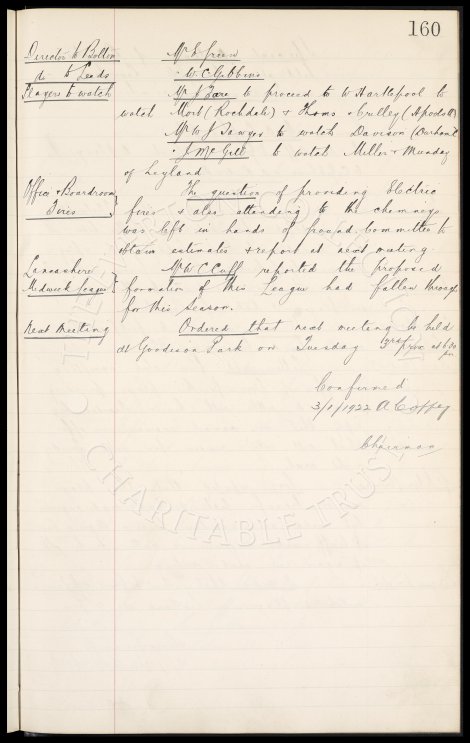 160
Director to Bolton Mr E Green
do to Leeds " W. C. Gibbins
Players to watch Mr J Fare to proceed to W Hartlepool to
watch Mort (Rochdale) & Thoms & Culley (
Mr W J Sawyer to watch Davison (Durham C
" J McGill to watch Miller & Munday
of Leyland
Office & Boardroom Fires } The question of providing Electric
fires & also attending to the chimneys
was left in hands of ground Committee to
obtain estimates & report at next meeting
Lancashire Midweek League } Mr W C Cuff reported the proposed
formation of this League had fallen through
for this season.
Next Meeting Ordered that next meeting be held
at Goodison Park on Tuesday 3rd
Confirmed
3/1/1922 A Coffey
Chairman
CHARITABLE TRUST